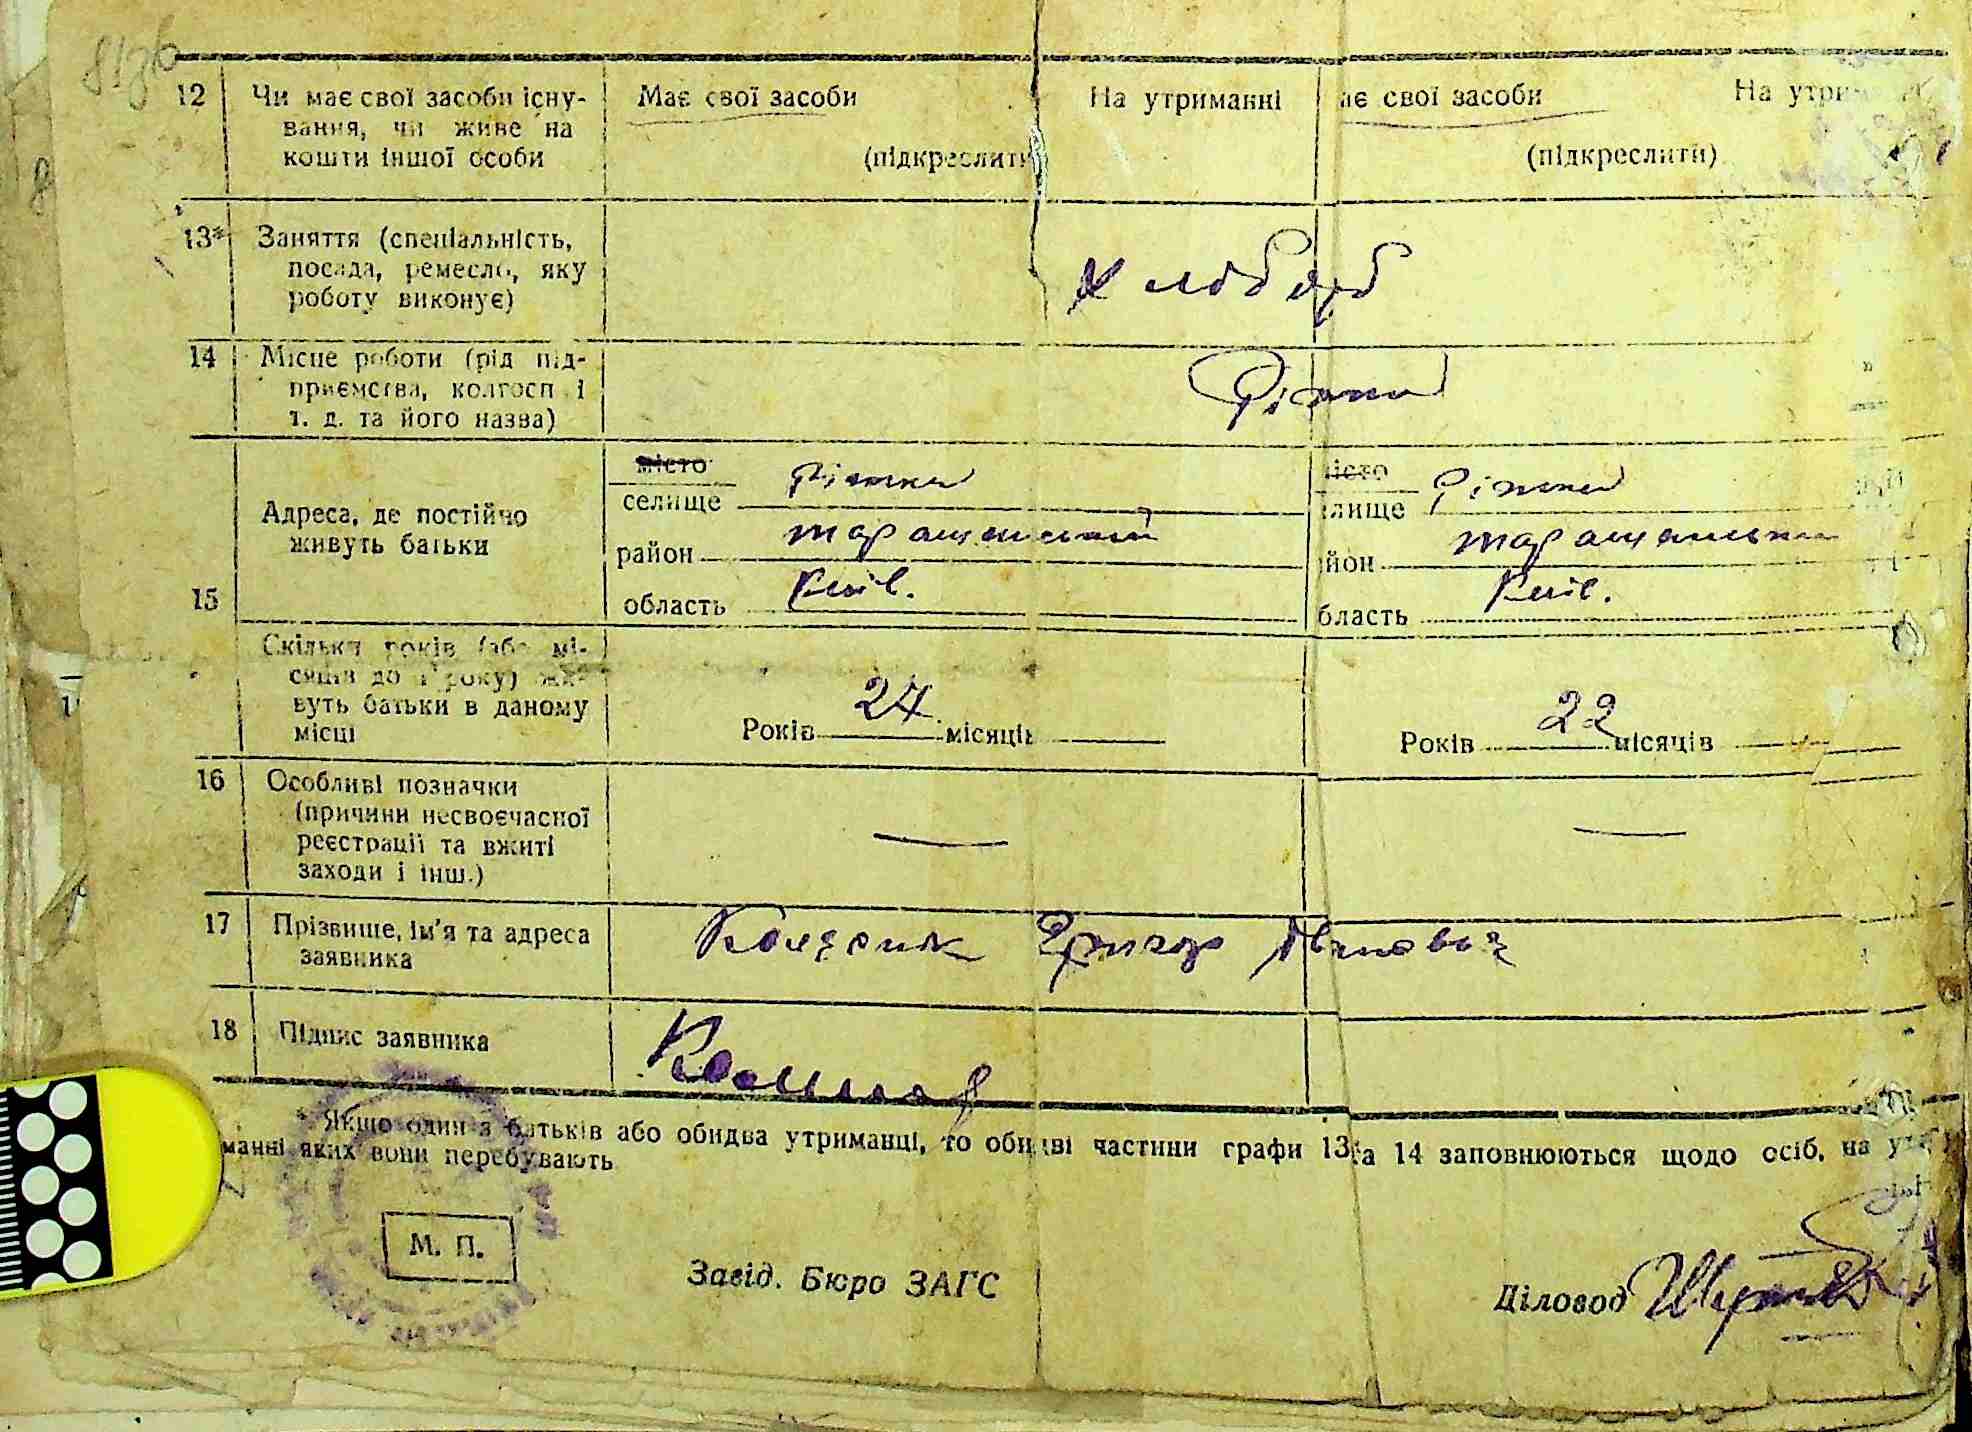 12 Чи має свої засоби існу- Має свої засоби На утриманні ає свої засоби На утри
вання, чи живе на
кошти іншої особи (підкреслити) (підкреслити)
13* Заняття (спеціальність,
посада, ремесло, яку хлібороб
роботу виконує)
14 Місце роботи (рід під-
приємства, колгосп і Ріжки
т. д. та його назва)
місто Ріжки істо Ріжки
селище лище
Адреса, де постійно
живуть батьки
район таращанський йон таращанський
15
область Київ. бласть Київ.
Скільки років (або мі-
сяців до 1 року) жи-
вуть батьки в даному
місці Років 24 місяців Років 22 місяців
16 Особливі позначки
(причини несвоєчасної — —
реєстрації та вжиті
заходи і інш.)
17 Прізвище, ім'я та адреса
заявника Колесник Григор Іванович
18 Підпис заявника
* Якщо один з батьків або обидва утриманці, то обидві частини графи 13 та 14 заповнюються щодо осіб, на ут
манні яких вони перебувають
М. П.
Завід. Бюро ЗАГС
Діловод